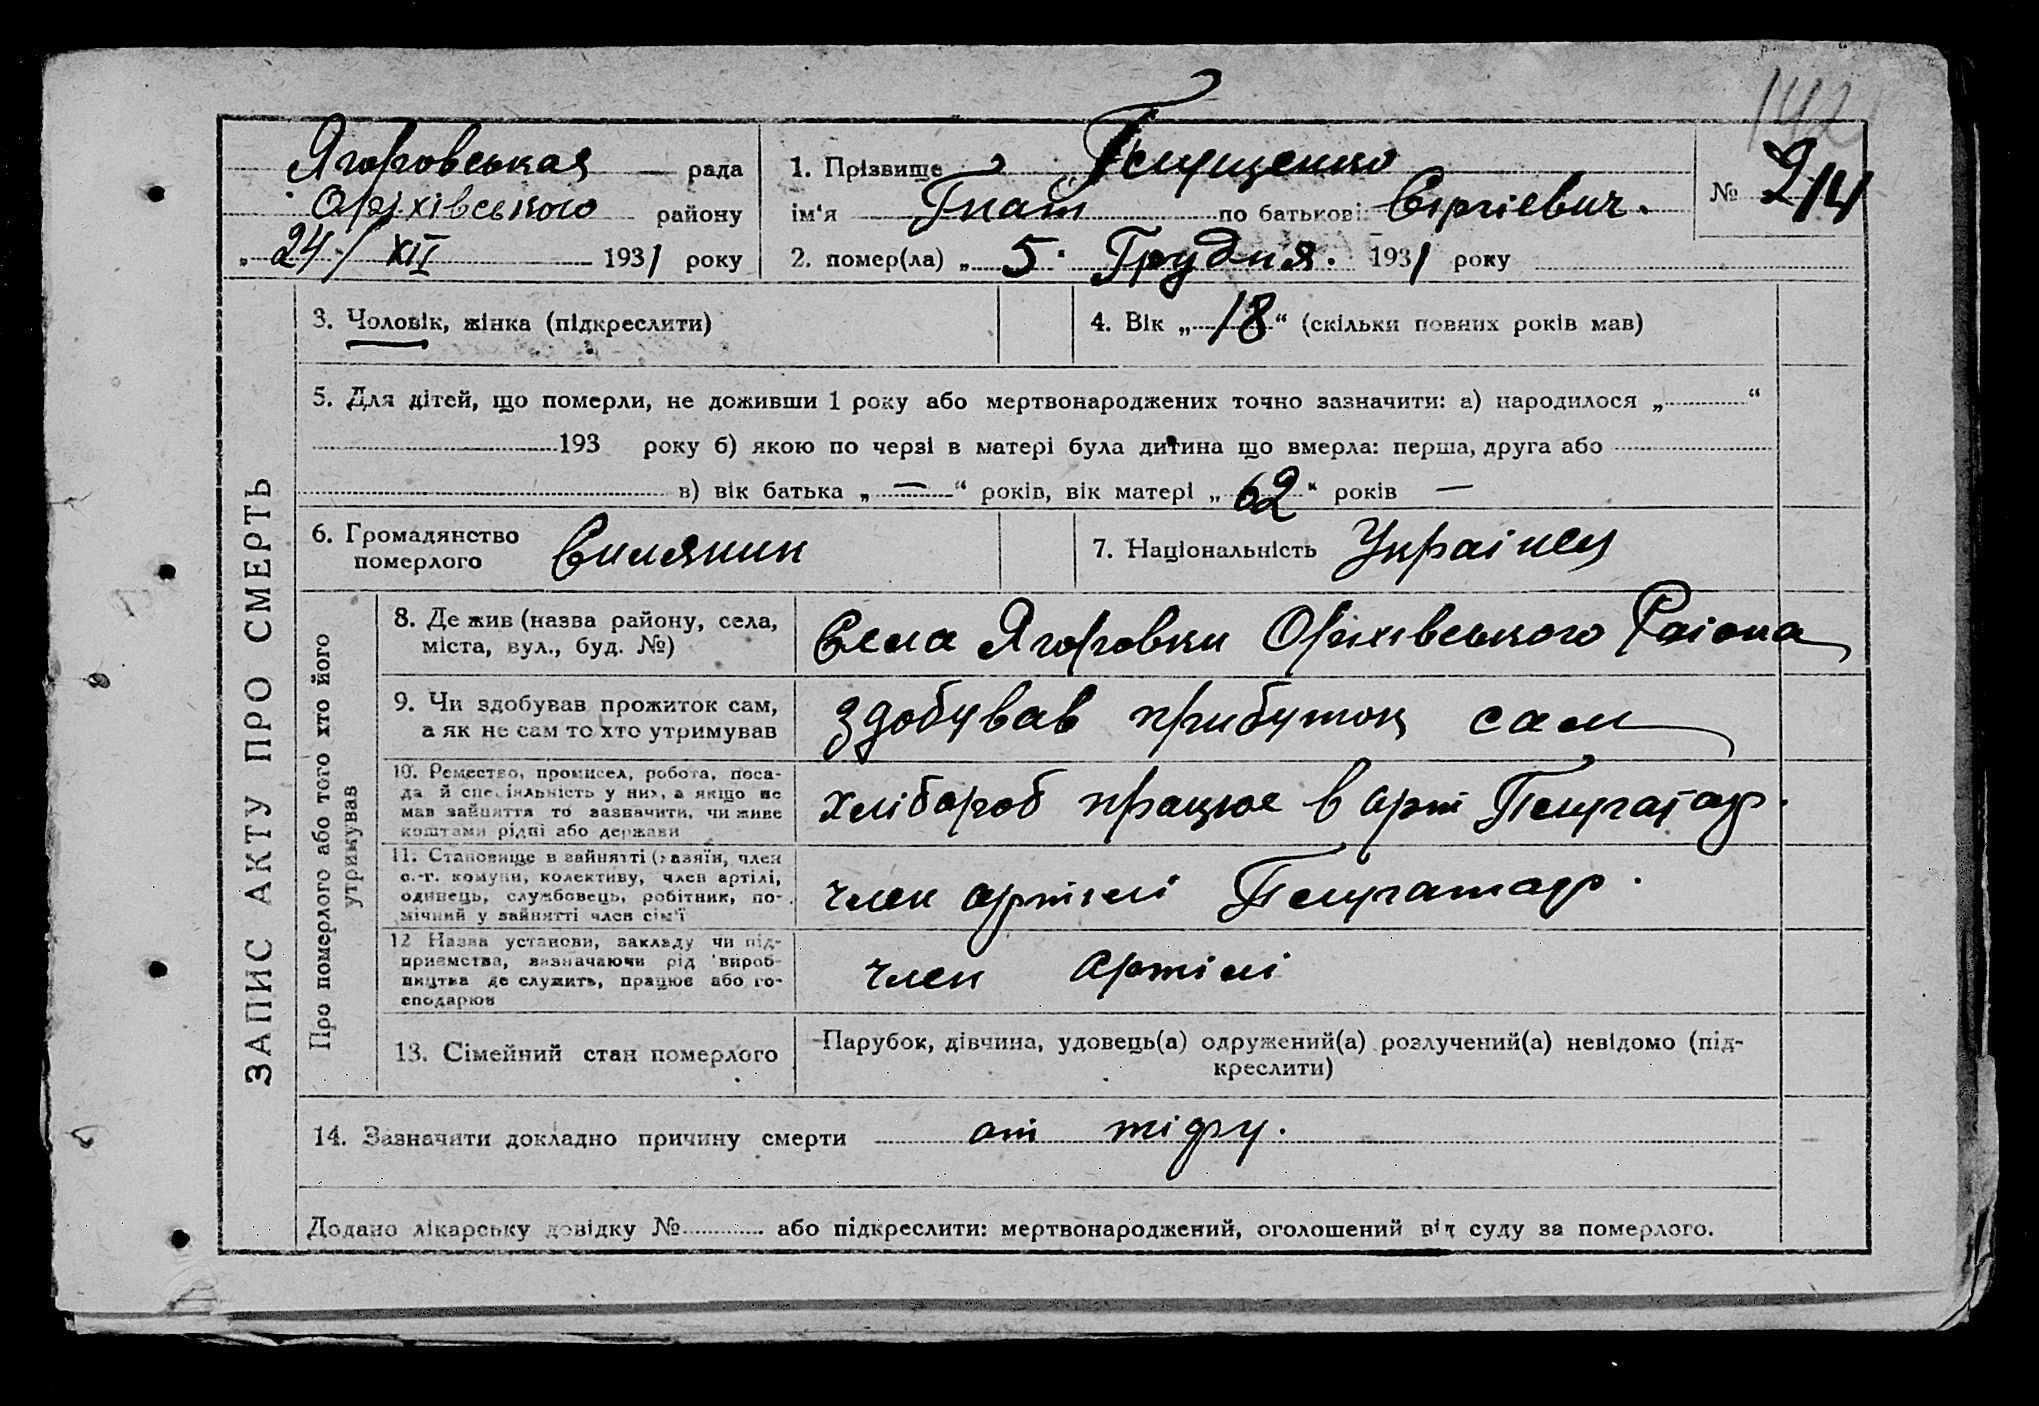 142
Ягоровськая рада
Оріхівського району
„24/XII 1931 року
1. Прізвище Гемущенко
ім'я Гнат по батькові Сергіевич.
2. помер(ла) „5" Грудня. 1931 року
№ 214
ЗАПИС АКТУ ПРО СМЕРТЬ
3. Чоловік, жінка (підкреслити)
4. Вік „18" (скільки повних років мав)
5. Для дітей, що померли, не доживши 1 року або мертвонароджених точно зазначити: а) народилося „ “
193 року б) якою по черзі в матері була дитина що вмерла: перша, друга або
в) вік батька „—“ років, вік матері „62“ років —
6. Громадянство
померлого Силянин
7. Національність Українец
Про померлого або того хто його
утримував
8. Де жив (назва району, села,
міста, вул., буд. №)
Села Ягоровки Оріхівського Раіона
9. Чи здобував прожиток сам,
а як не сам то хто утримував
здобував прибуток сам
10. Ремество, промисел, робота, поса-
да й спеціяльність у них, а якщо не
мав зайняття то зазначити, чи живе
коштами рідні або держави
хлібороб працює в арт
11. Становище в зайнятті (хазяїн, член
с.-г. комуни, колективу, член артілі,
одинець, службовець, робітник, по-
мічний у зайнятті член сім'ї
член артілі
12 Назва установи, закладу чи під-
приємства, визначаючи рід вироб-
ництва де служить, працює або го-
сподарює
член артілі
13. Сімейний стан померлого
Парубок, дівчина, удовець(а) одружений(а) розлучений(а) невідомо (під-
креслити)
14. Зазначити докладно причину смерти от тіфу.
Додано лікарську довідку № або підкреслити: мертвонароджений, оголошений від суду за померлого.